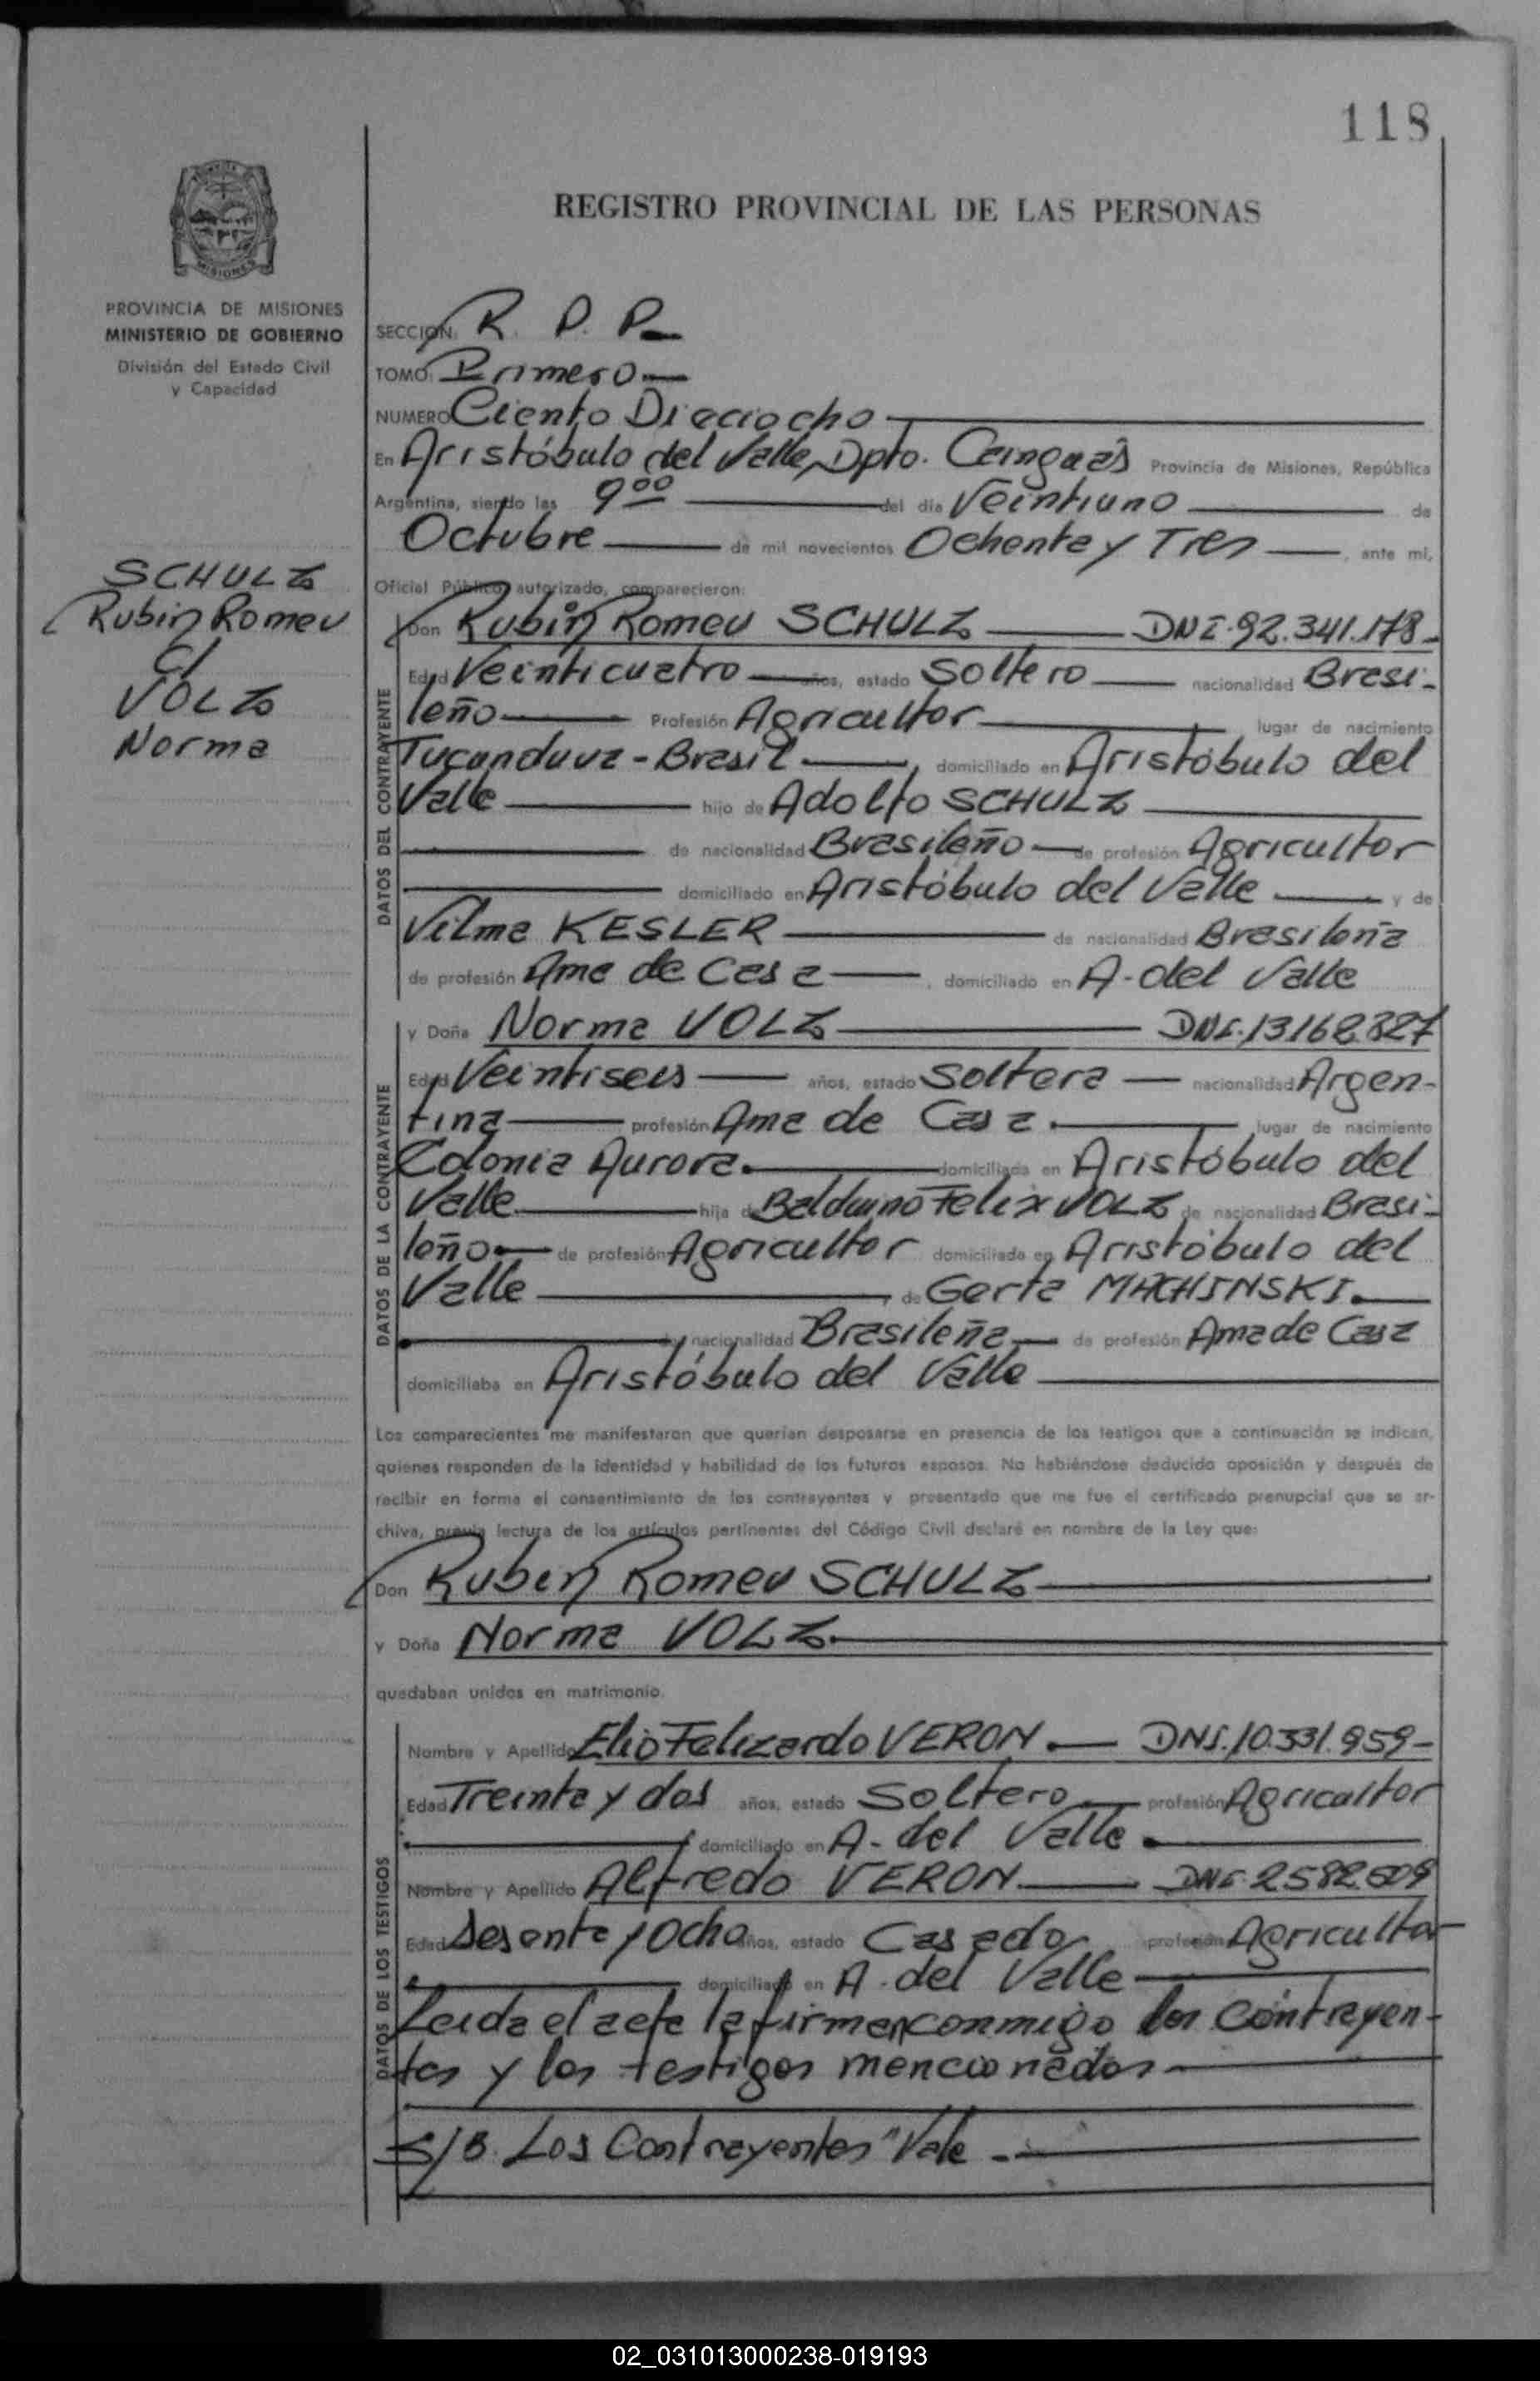 118
REGISTRO PROVINCIAL DE LAS PERSONAS
MISIONES
PROVINCIA DE MISIONES
MINISTERIO DE GOBIERNO
División del Estado Civil
y Capacidad
SCHULZ
Rubin Romeu
C/
VOLZ
Norma
SECCION: R. P. P.
TOMO: Primero
NUMERO Ciento Dieciocho
En Aristóbulo del Valle, Dpto. Cainguás Provincia de Misiones, República
Argentina, siendo las 9 00 del día Veintiuno de
Octubre de mil novecientos Ochenta y Tres, ante mí,
Oficial Público autorizado, comparecieron:
DATOS DEL CONTRAYENTE
Don Rubin Romeu SCHULZ DNI. 92.341.178
Edad Veinticuatro años, estado Soltero nacionalidad Brasi-
leño Profesión Agricultor lugar de nacimiento
Tucunduva - Brasil, domiciliado en Aristóbulo del
Valle hijo de Adolfo SCHULZ
de nacionalidad Brasileño de profesión Agricultor
domiciliado en Aristóbulo del Valle y de
Vilma KESLER de nacionalidad Brasileña
de profesión Ama de Casa, domiciliado en A. del Valle
DATOS DE LA CONTRAYENTE
y Doña Norma VOLZ DNI. 13168.327
Edad Veintiseis años, estado Soltera nacionalidad Argen-
tina profesión Ama de Casa. lugar de nacimiento
Colonia Aurora. domiciliada en Aristóbulo del
Valle hija de Balduino Felix VOLZ de nacionalidad Brasi-
leño de profesión Agricultor domiciliado en Aristóbulo del
Valle, de Gerta MACHINSKI.
de nacionalidad Brasileña de profesión Ama de Casa
domiciliaba en Aristóbulo del Valle
Los comparecientes me manifestaron que querían desposarse en presencia de los testigos que a continuación se indican,
quienes responden de la identidad y habilidad de los futuros esposos. No habiéndose deducido oposición y después de
recibir en forma el consentimiento de los contrayentes y presentado que me fue el certificado prenupcial que se ar-
chiva, previa lectura de los artículos pertinentes del Código Civil declaré en nombre de la Ley que:
Don Ruben Romeu SCHULZ
y Doña Norma VOLZ
quedaban unidos en matrimonio.
DATOS DE LOS TESTIGOS
Nombre y Apellido Elio Felizardo VERON. DNI. 10.331.959
Edad Treinta y dos años, estado Soltero profesión Agricultor
domiciliado en A. del Valle
Nombre y Apellido Alfredo VERON DNI. 2582.609
Edad Sesenta y Ocho años, estado Casado profesión Agricultor
domiciliado en A. del Valle
Leida el acta la firman conmigo los Contrayen-
tes y los testigos mencionados
S/B. Los Contrayentes "Vale
02_031013000238-019193